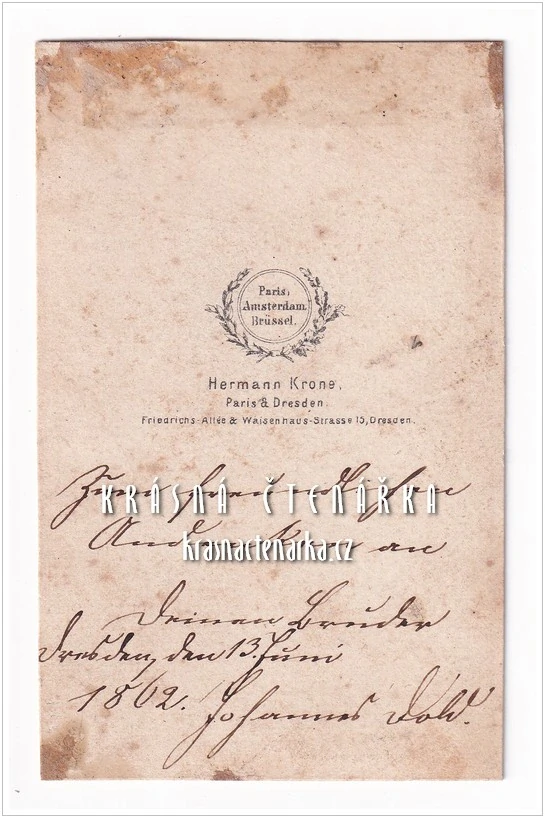 Paris,
Amsterdam
Brüssel.
Hermann Krone,
Paris & Dresden.
Friedrichs-Allée & Waisenhaus-Strasse 15, Dresden.
Zum freundlichen
KRÁSNÁ ČTENÁŘKA
Andenken an
krasnactenarka.cz
Deinen Bruder
Dresden, den 13. Juni
1862. Johannes Dold.